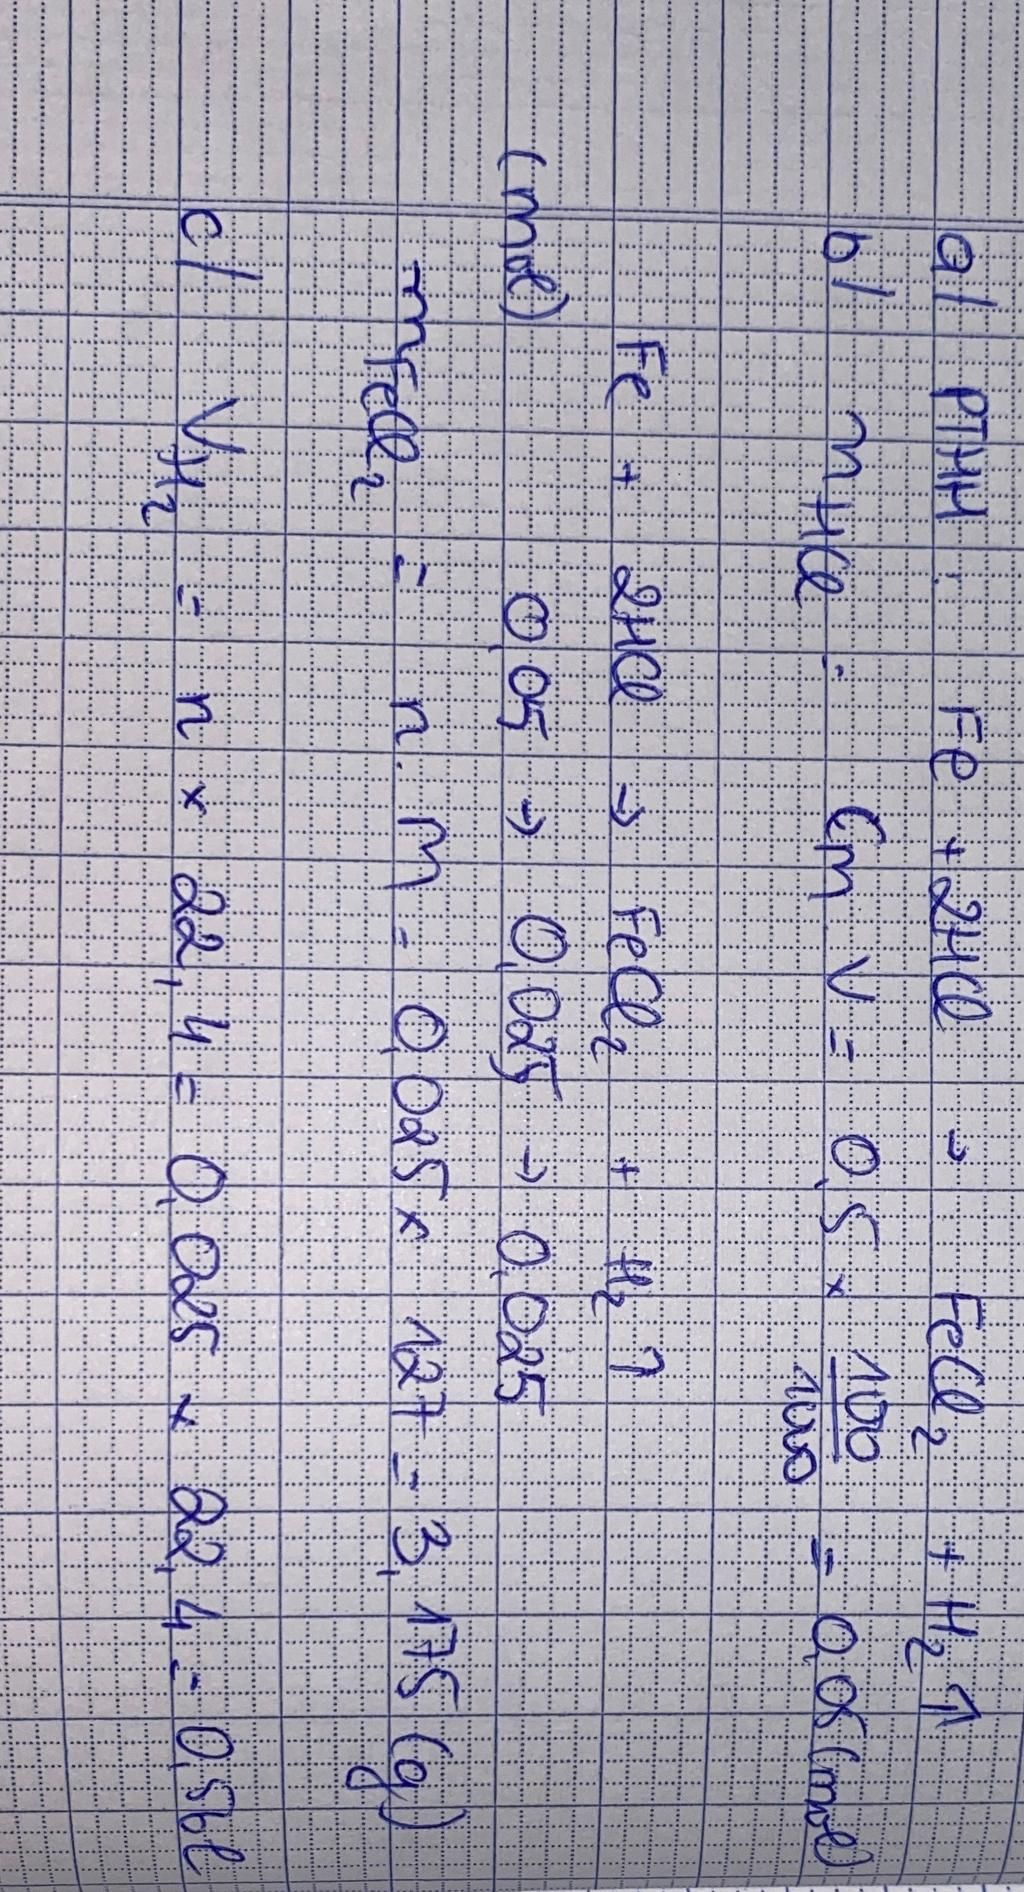 a/ PTHH : Fe + 2HCl → FeCl₂ + H₂ ↑
b/ n HCl = Cm V = 0,5 × 100/1000 = 0,05 (mol)
Fe + 2HCl → FeCl₂ + H₂ ↑
(mol) 0,05 → 0,025 → 0,025
mFeCl₂ = n. M = 0,025 × 127 = 3,175 (g)
c/ VH₂ = n × 22,4 = 0,025 × 22,4 = 0,56l